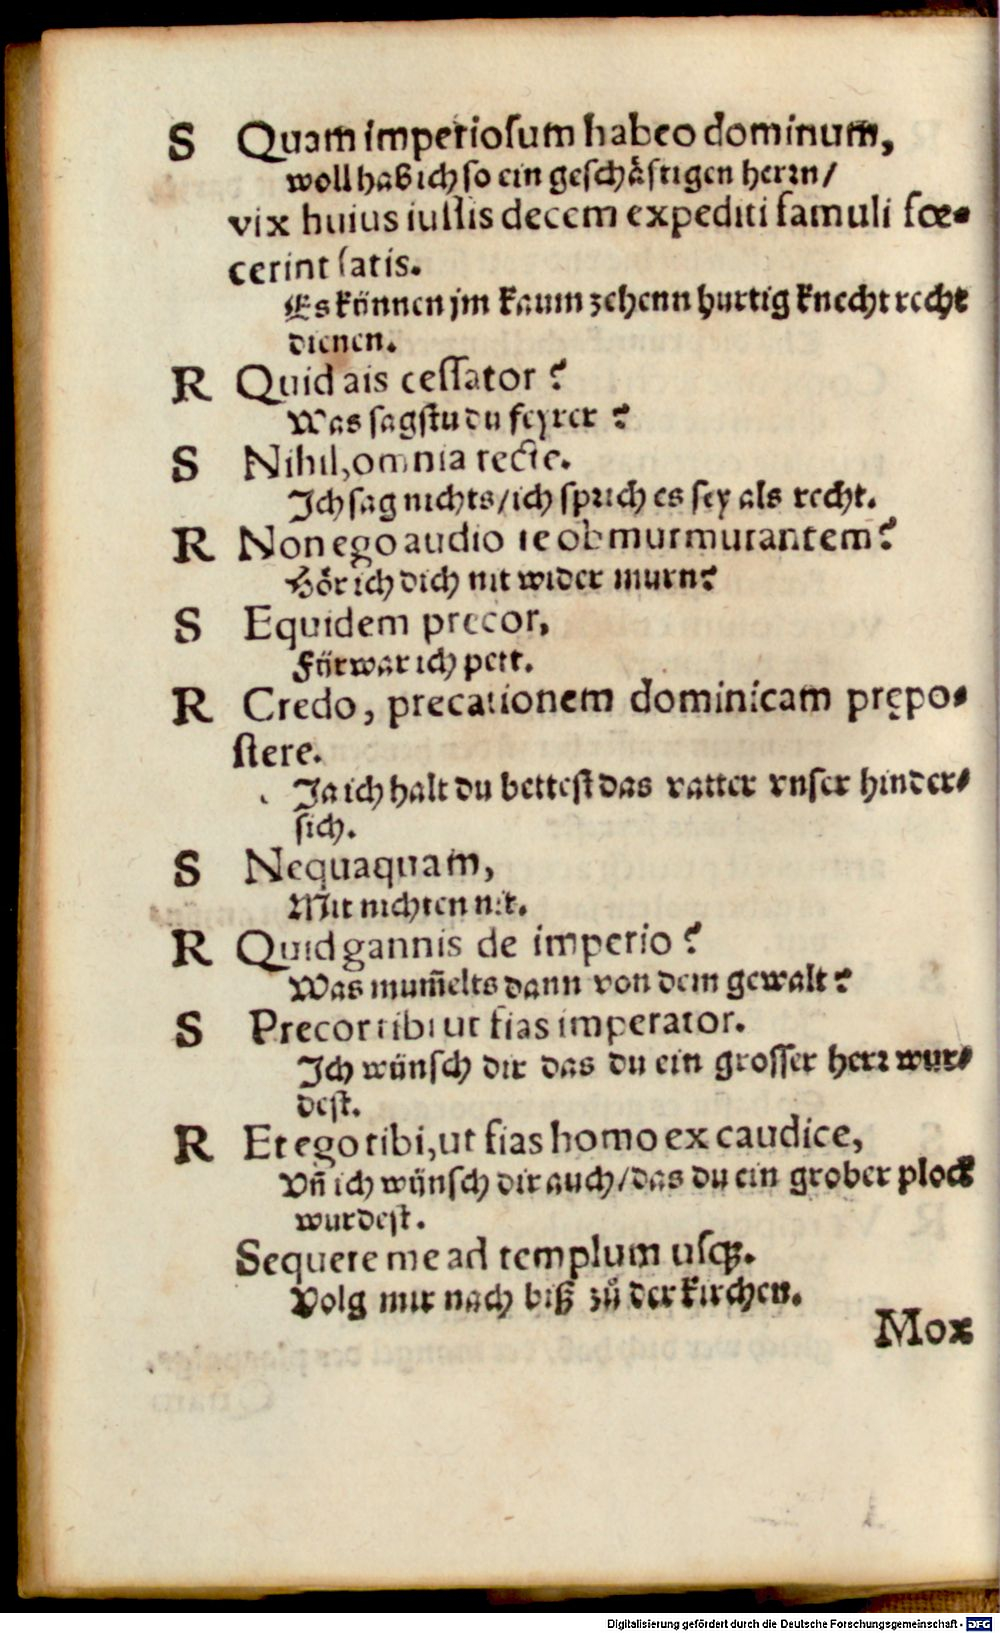 S Quam imperiosum habeo dominum,
woll hab ich so ein geschåftigen herrn/
vix huius iussis decem expediti famuli fœ-
cerint satis.
Es können jm kaum zehenn hurtig knecht recht
dienen.
R Quid ais cessator?
Was sagstu du feyrer?
S Nihil, omnia recte.
Ich sag nichts/ich sprich es sey als recht.
R Non ego audio te obmurmurantem?
Hör ich dich nit wider murn?
S Equidem precor,
Fürwar ich pett.
R Credo, precationem dominicam prępo-
stere.
Ja ich halt du bettest das vatter vnser hinder-
sich.
S Nequaquam,
Mit nichten nit.
R Quid gannis de imperio?
Was mum̃elts dann von dem gewalt?
S Precor tibi ut fias imperator.
Ich wünsch dir das du ein grosser herr wur-
dest.
R Et ego tibi, ut fias homo ex caudice,
Vñ ich wünsch dir auch/das du ein grober plock
wurdest.
Sequere me ad templum usqꝫ.
Volg mir nach biß zů der kirchen.
Mox
Digitalisierung gefördert durch die Deutsche Forschungsgemeinschaft - DFG